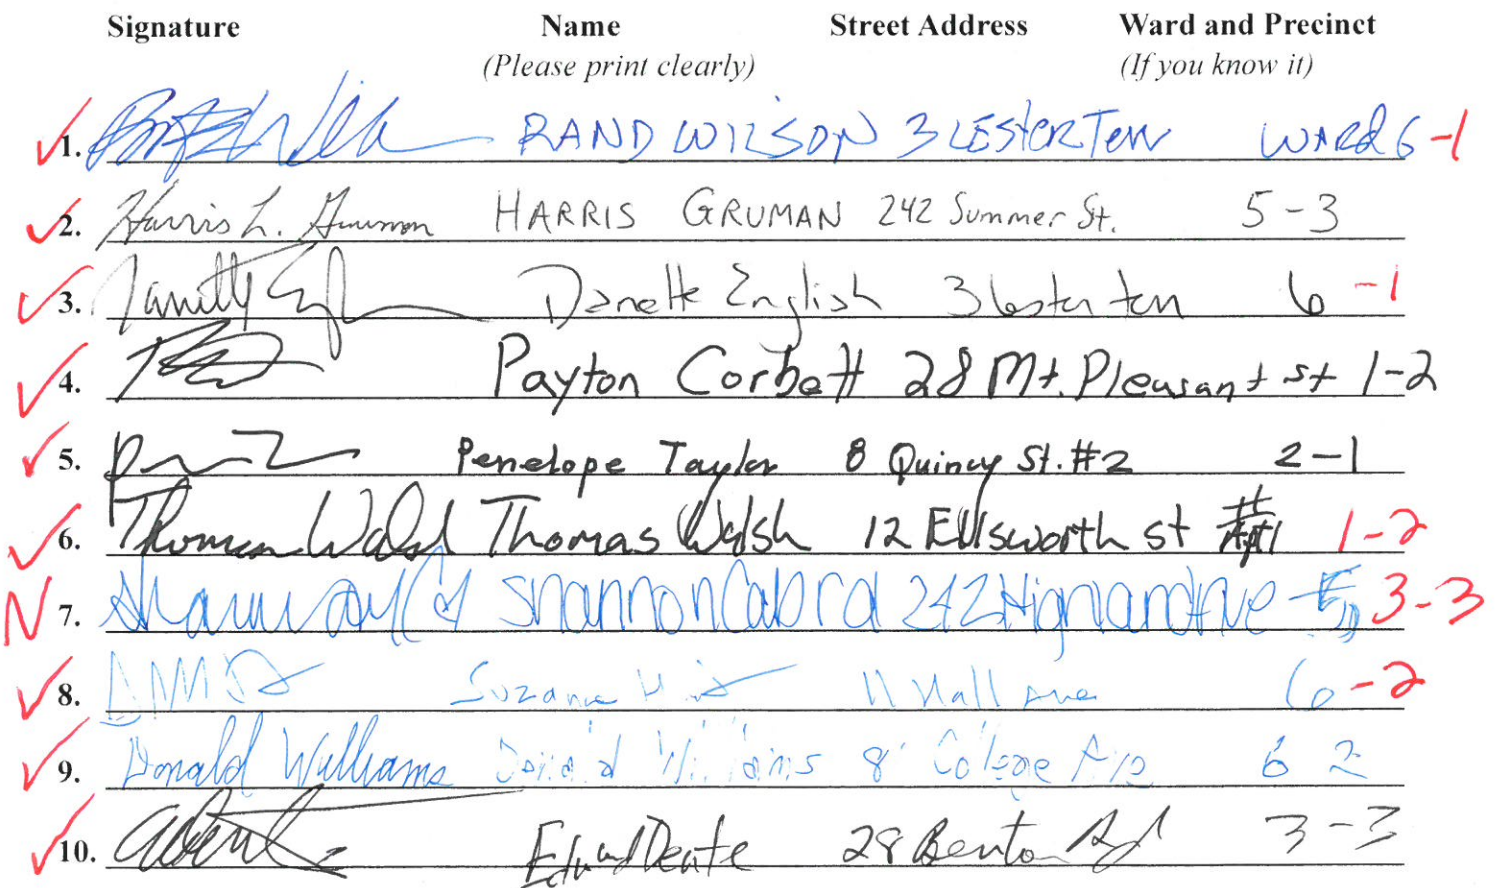 Signature Name Street Address Ward and Precinct
(Please print clearly) (If you know it)
1. RAND WILSON 3 LESTER Terr WARD 6 -1
2. Harris L. Gruman HARRIS GRUMAN 242 Summer St. 5-3
3. Danette English 3 Lester terr 6 -1
4. Payton Corbett 28 Mt. Pleasant st 1-2
5. Penelope Taylor 8 Quincy St. #2 2-1
6. Thomas Walsh Thomas Walsh 12 Ellsworth st 1-2
N 7. Shannon Cabral 242 Highland Ave 3-3
8. Suzanne 11 Hall Ave 6 -2
9. Donald Williams Donald Williams 8 College Ave 6 2
10. 28 Benton Rd 3-3